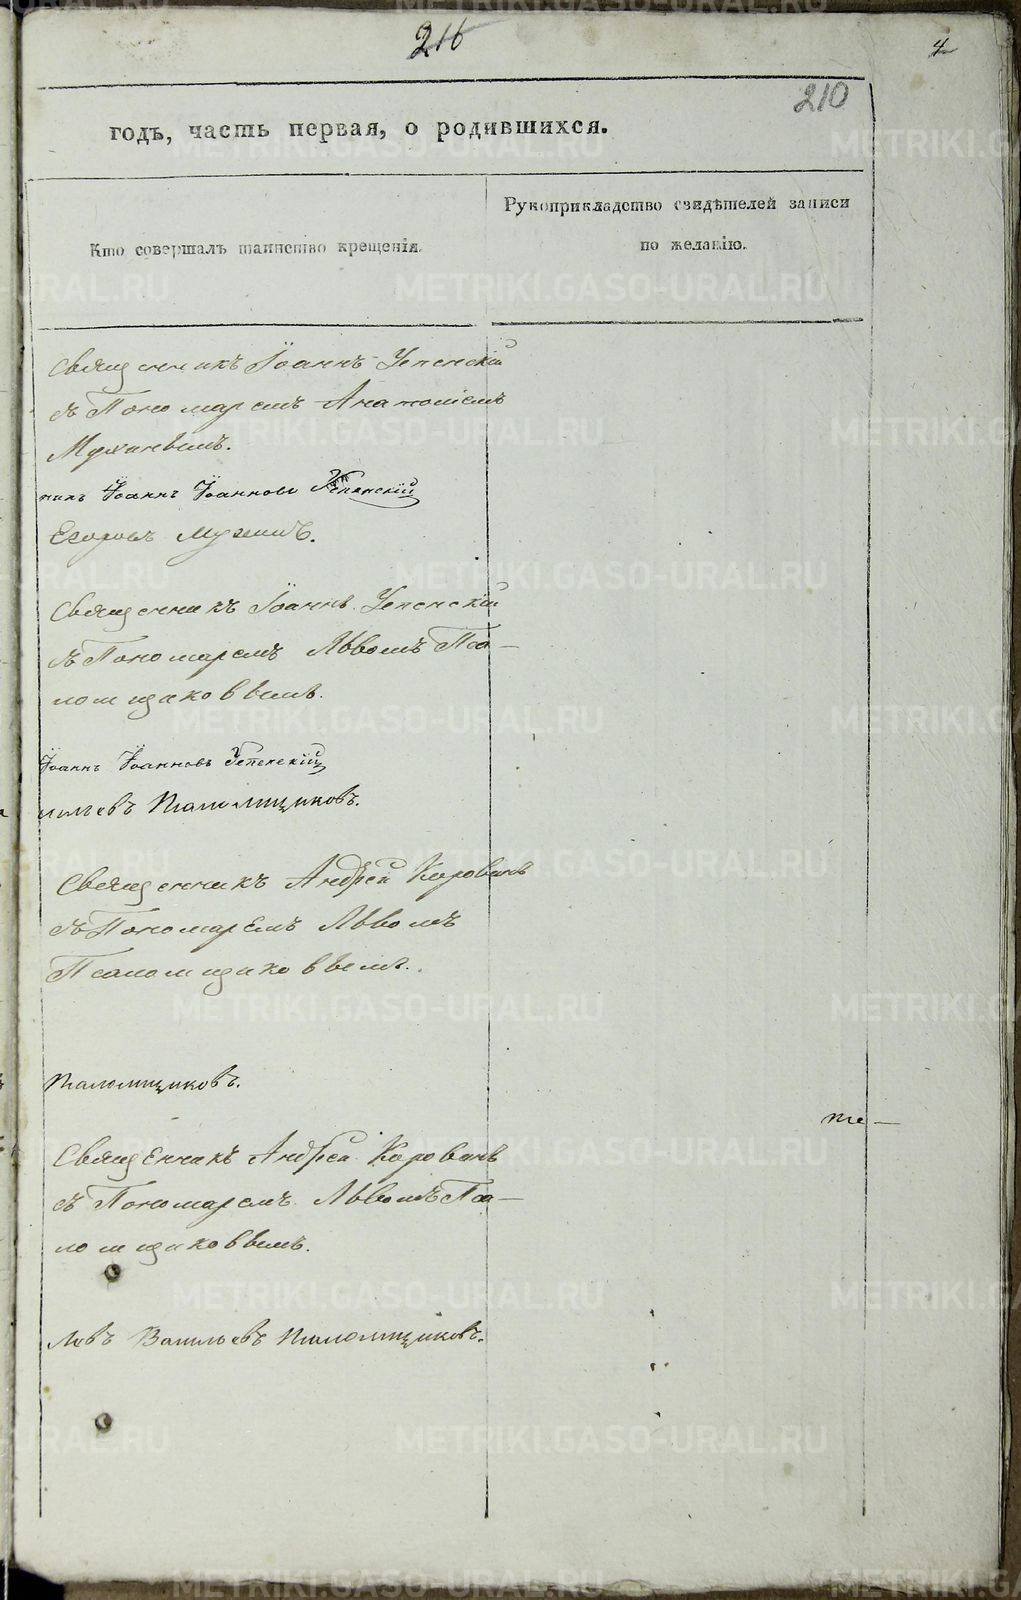 216
4
210
годъ, часть первая, о родившихся.
Кто совершалъ таинство крещенія.
Рукоприкладство свидѣтелей записи
по желанію.
Священникъ Іоаннъ Успенскій
съ Пономаремъ Анатоліемъ
Мухиневымъ.
никъ Іоаннъ Іоанновъ Успенскій
Егоровъ Мухинъ.
Священникъ Іоаннъ Успенскій
съ Пономаремъ Львомъ Пса-
ломщиковвымъ.
Іоаннъ Іоанновъ Успенскій
сильевъ Псаломщиковъ.
Священникъ Андрей Коровинъ
съ Пономаремъ Львомъ
Псаломщиковвымъ.
Псаломщиковъ.
те-
Священникъ Андрей Коровинъ
съ Пономаремъ Львомъ Пса-
ломщиковвымъ.
Левъ Васильевъ Псаломщиковъ.
METRIKI.GASO-URAL.RU